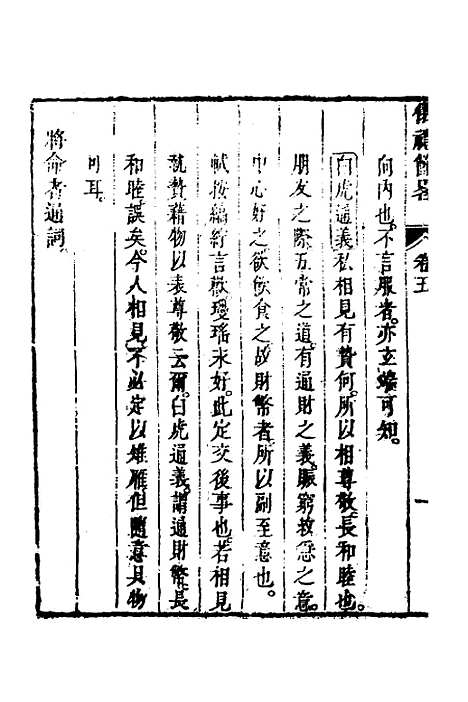 儀禮節畧
卷五
一
向內也。不言服者。亦立端可知。
白虎通義私相見有贄何。所以相尊敬。長和睦也。
朋友之際。五常之道。有通財之義。賑窮救急之意。
中心好之。欲飲食之。故財幣者。所以副至意也。
軾按縞紵言歡。瓊瑤永好。此定交後事也。若相見
執贄藉物以表尊敬云爾。白虎通義。謂通財幣。長
和睦誤矣。今人相見。不必定以雉雁。但隨意具物
可耳。
將命者通詞。